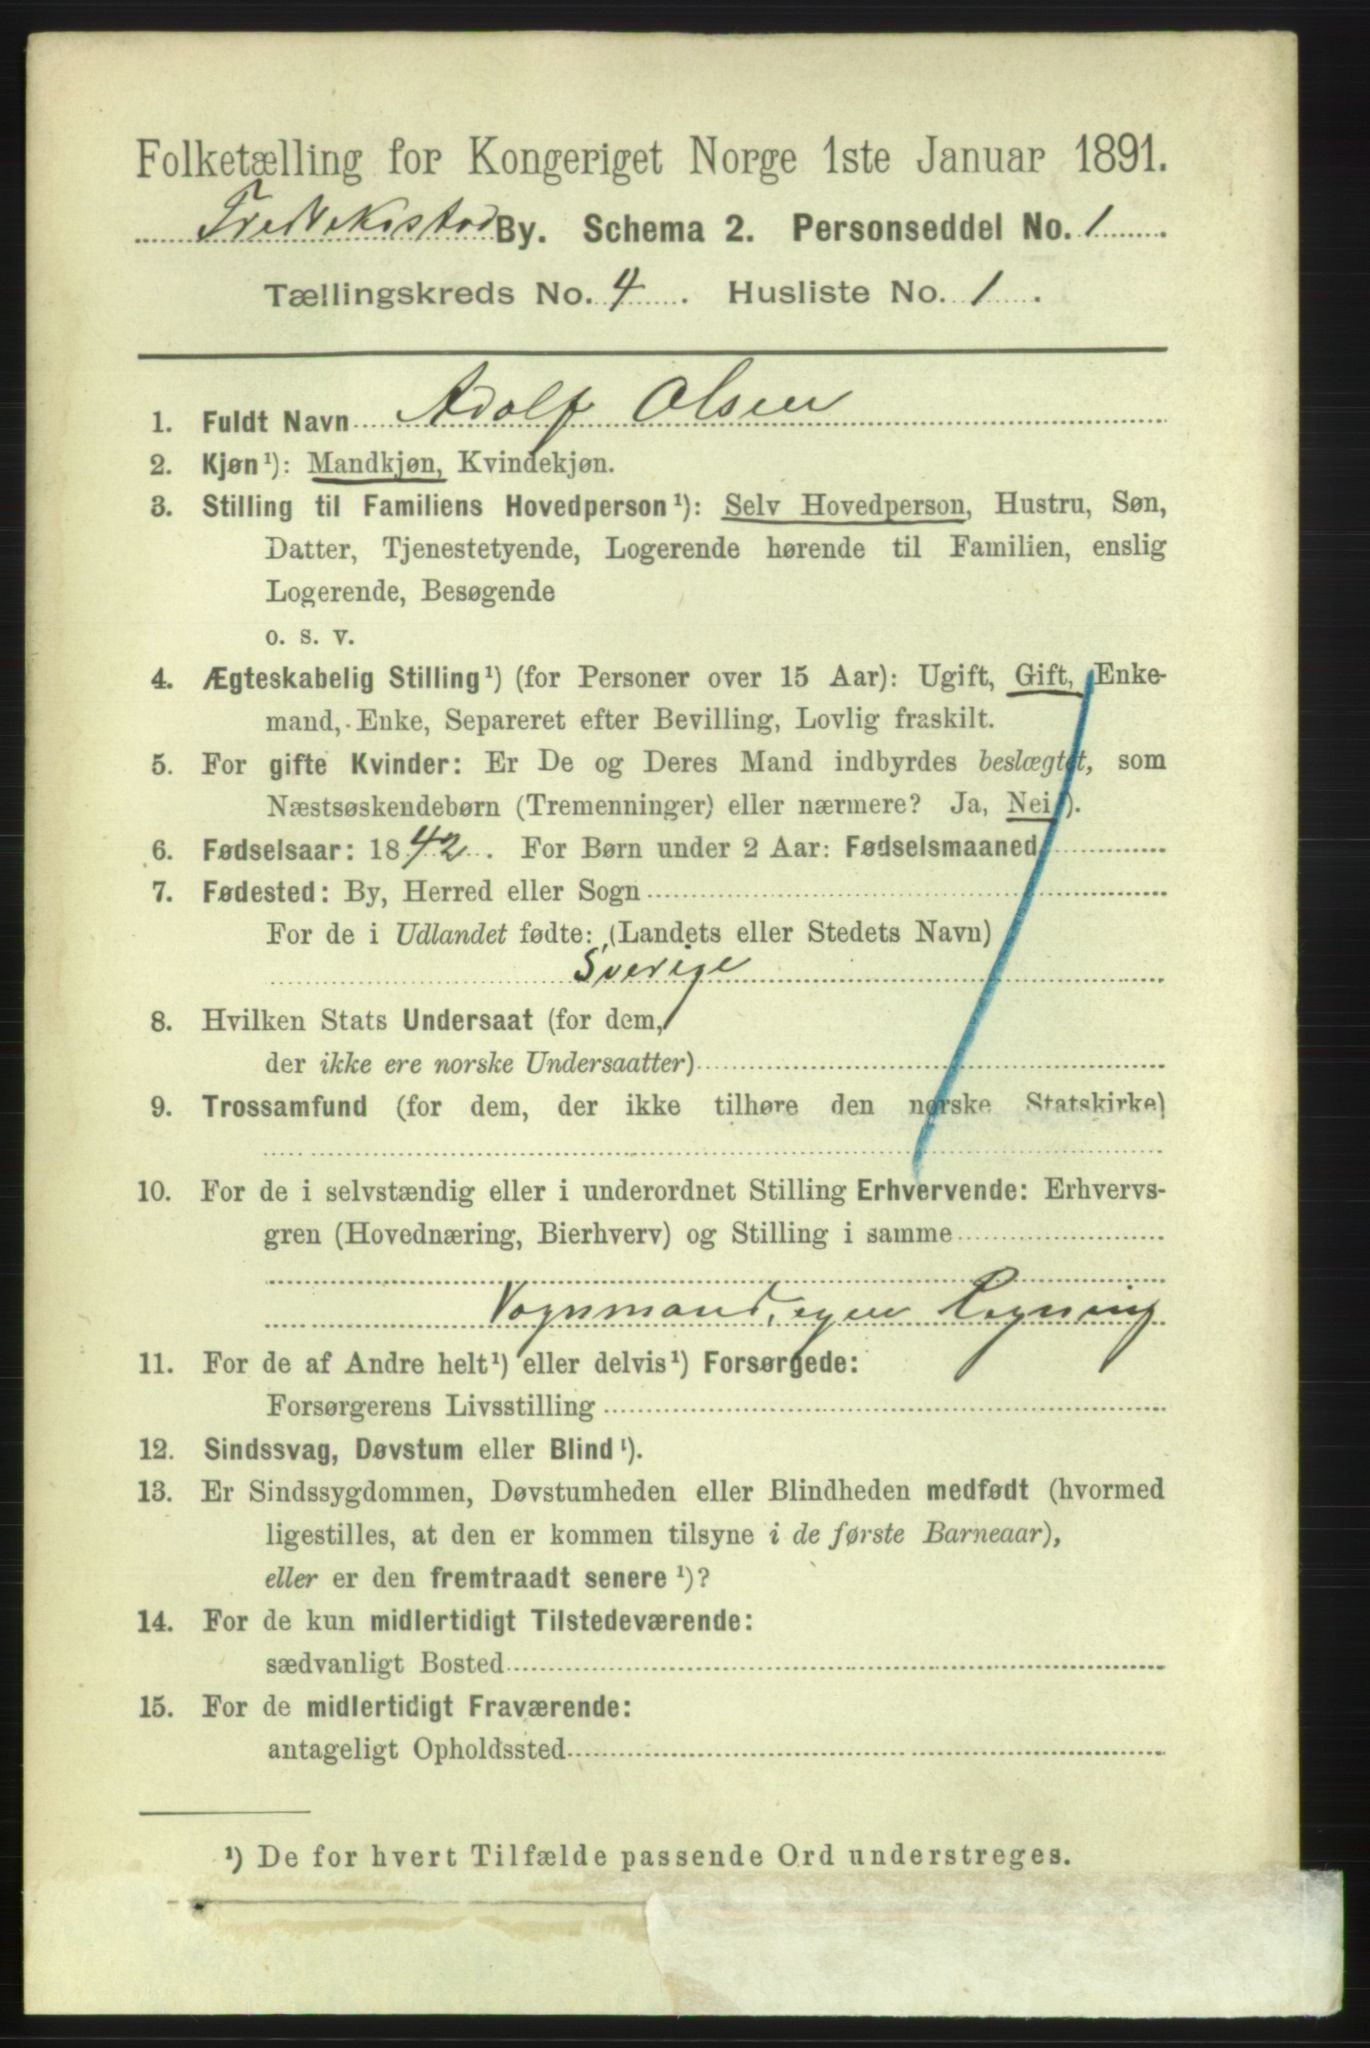 Folketælling for Kongeriget Norge 1ste Januar 1891.
Fredrekstad By. Schema 2. Personseddel No. 1
Tællingskreds No. 4. Husliste No. 1.
1. Fuldt Navn Adolf Olsen
2. Kjøn¹): Mandkjøn, Kvindekjøn.
3. Stilling til Familiens Hovedperson¹): Selv Hovedperson, Hustru, Søn,
Datter, Tjenestetyende, Logerende hørende til Familien, enslig
Logerende, Besøgende
o. s. v.
4. Ægteskabelig Stilling¹) (for Personer over 15 Aar): Ugift, Gift, Enke-
mand, Enke, Separeret efter Bevilling, Lovlig fraskilt.
5. For gifte Kvinder: Er De og Deres Mand indbyrdes beslægtet, som
Næstsøskendebørn (Tremenninger) eller nærmere? Ja, Nei¹).
6. Fødselsaar: 1842. For Børn under 2 Aar: Fødselsmaaned
7. Fødested: By, Herred eller Sogn
For de i Udlandet fødte: (Landets eller Stedets Navn)
Sverige
8. Hvilken Stats Undersaat (for dem,
der ikke ere norske Undersaatter)
9. Trossamfund (for dem, der ikke tilhøre den norske Statskirke)
10. For de i selvstændig eller i underordnet Stilling Erhvervende: Erhvervs-
gren (Hovednæring, Bierhverv) og Stilling i samme
Vognmand, egen Regning
11. For de af Andre helt¹) eller delvis¹) Forsørgede:
Forsørgerens Livsstilling
12. Sindssvag, Døvstum eller Blind¹).
13. Er Sindssygdommen, Døvstumheden eller Blindheden medfødt (hvormed
ligestilles, at den er kommen tilsyne i de første Barneaar),
eller er den fremtraadt senere¹)?
14. For de kun midlertidigt Tilstedeværende:
sædvanligt Bosted
15. For de midlertidigt Fraværende:
antageligt Opholdssted
¹) De for hvert Tilfælde passende Ord understreges.